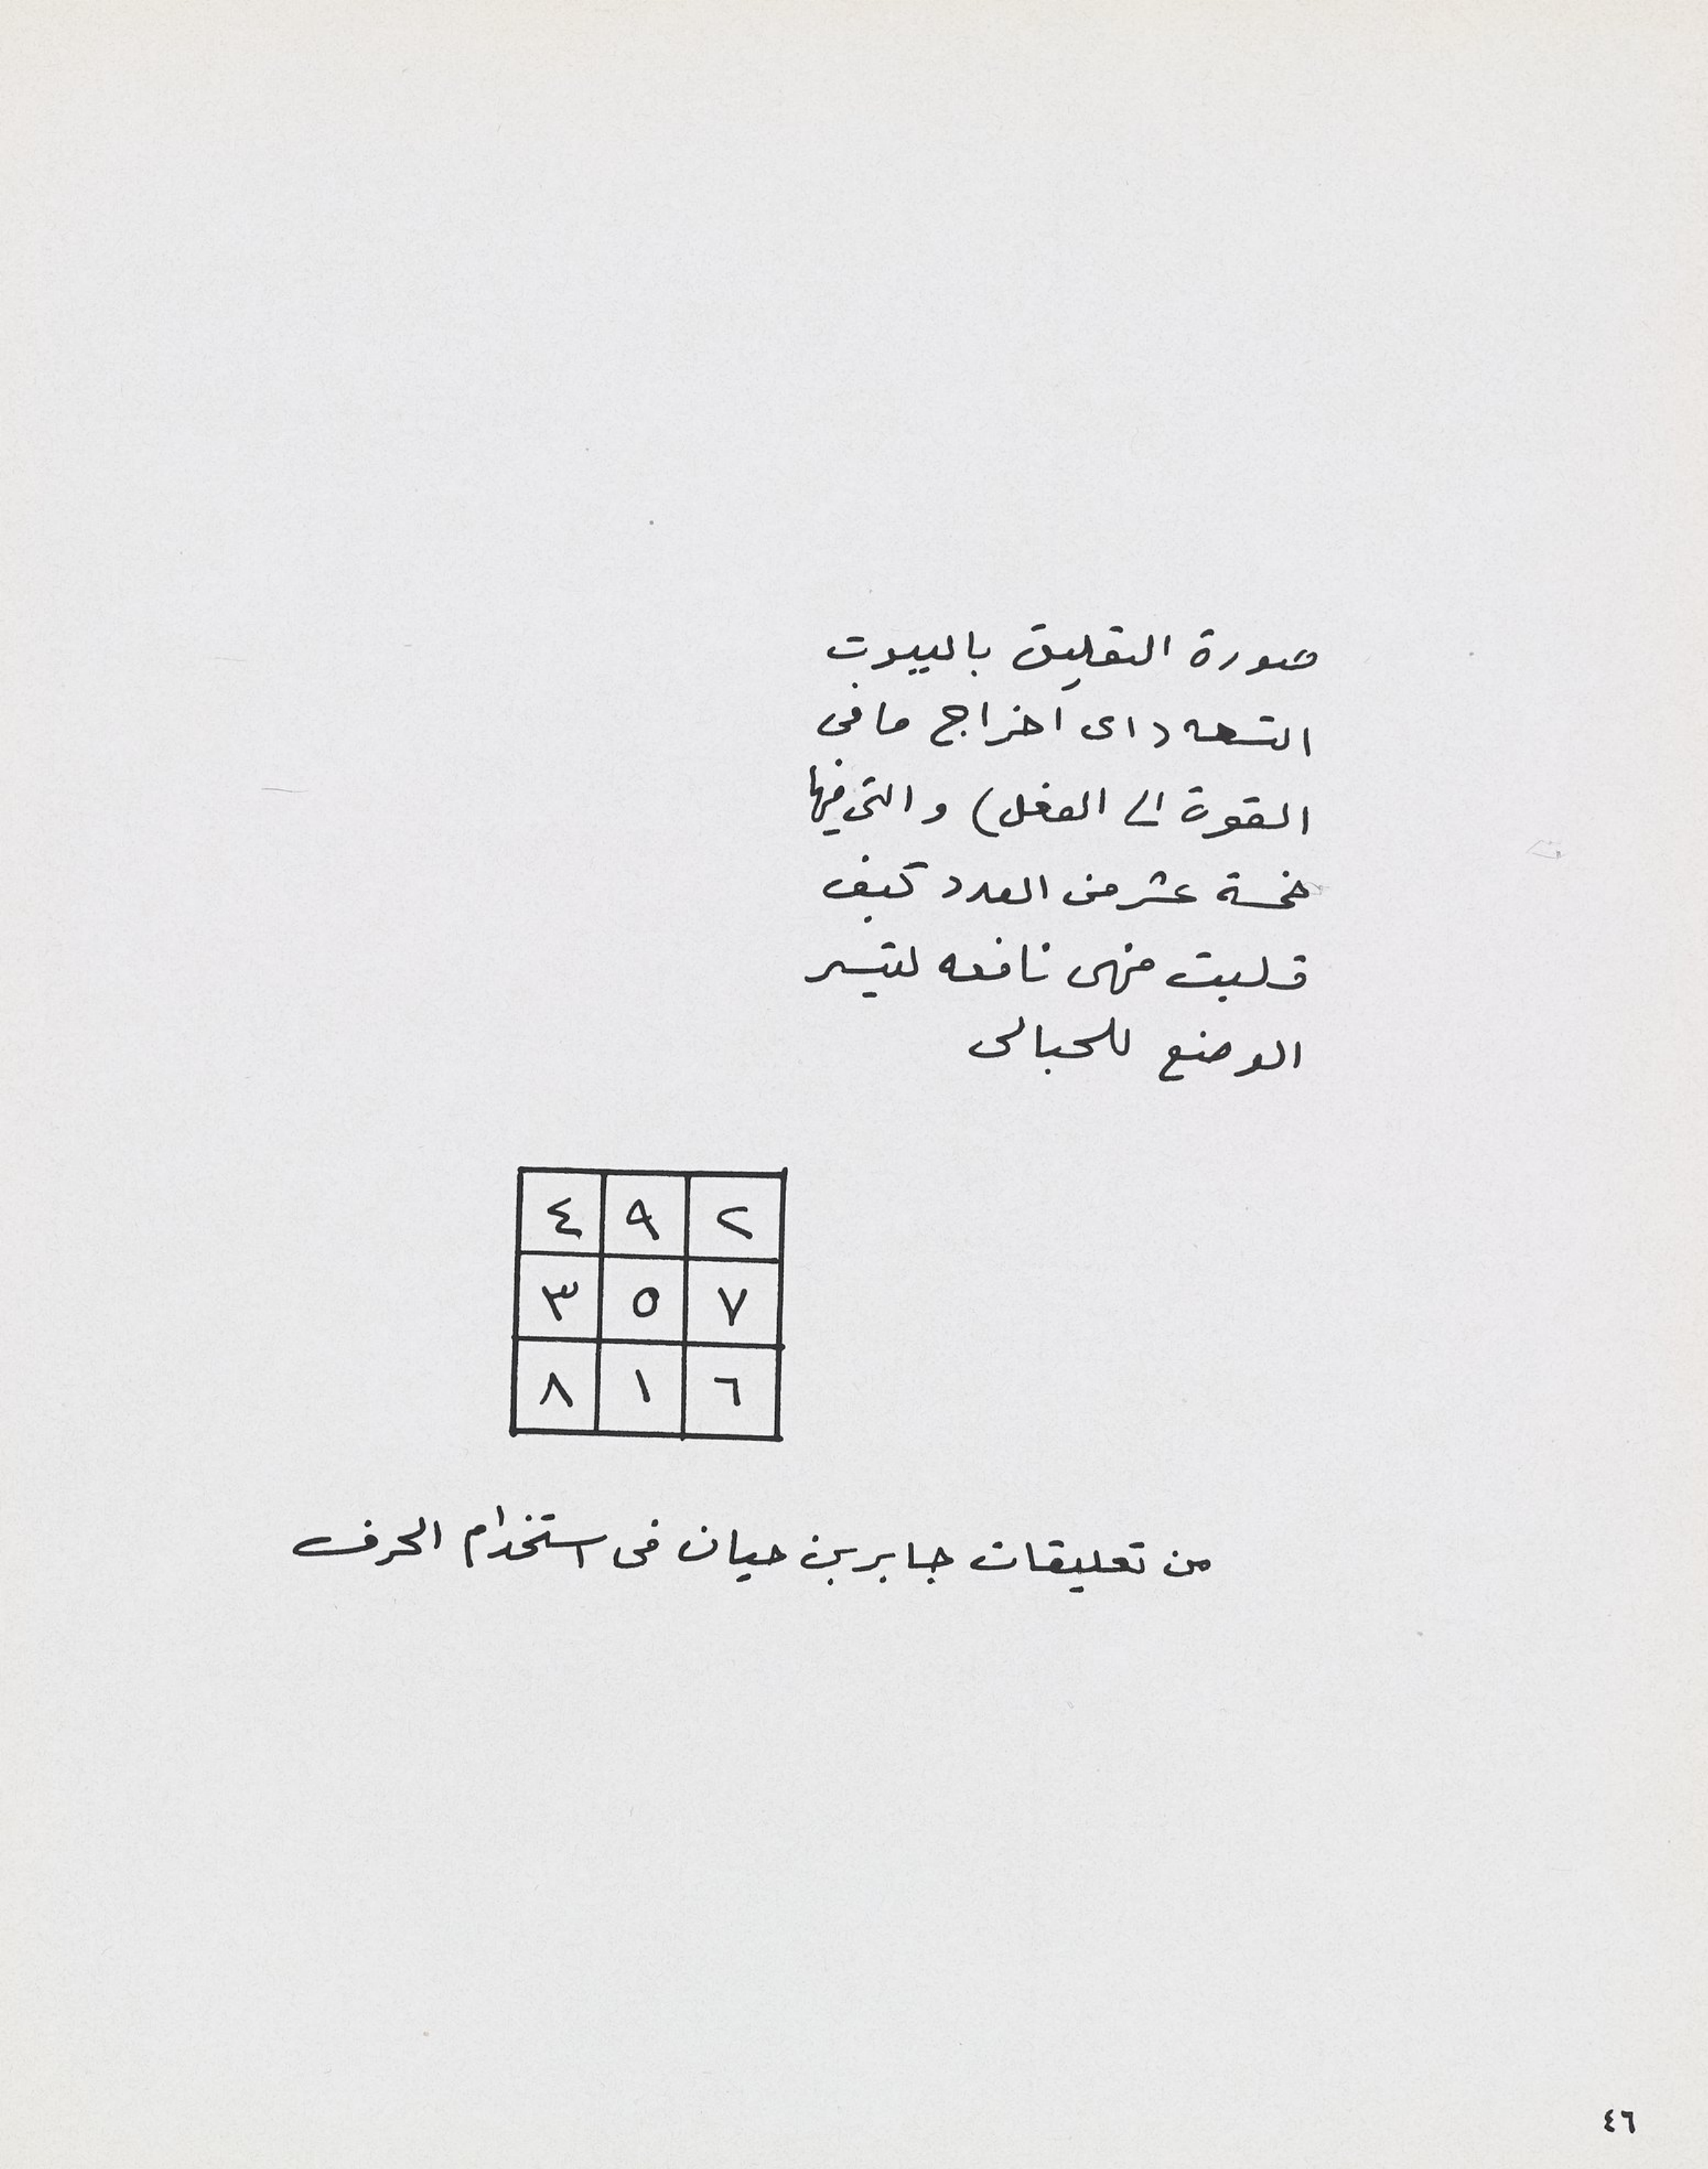 صورة التعليق بالبيوت
التسعه (اى اخراج ما فى
القوة الى الفعل) والتى فيها
خمسة عشر من العدد كيف
قلبت فهى نافعه لتيسر
الوضع للحبالى
٤ ٩ ٢
٣ ٥ ٧
٨ ١ ٦
من تعليقات جابر بن حيان فى استخدام الحرف
٤٦